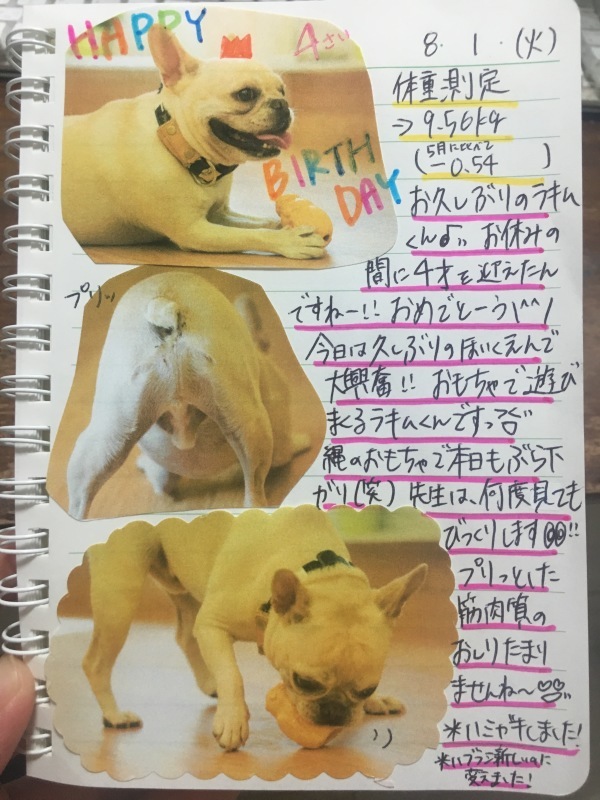 HAPPY
4さい
BIRTH
DAY
プリッ
8.1.(火)
体重測定
⇒9.56kg
(5月に比べて
-0.54)
お久しぶりのラキム
くん♪ お休みの
間に4才を迎えたん
ですねー!! おめでとーう\^^/
今日は久しぶりのほいくえんで
大興奮!! おもちゃで遊び
まくるラキムくんですっ
縄のおもちゃで本日もぶら下
がり(笑) 先生は、何度見ても
びっくりします!!
プリっとした
筋肉質の
おしりたまり
ませんね〜
※ハミガキしました!
※ハブラシ新しいのに
変えました!